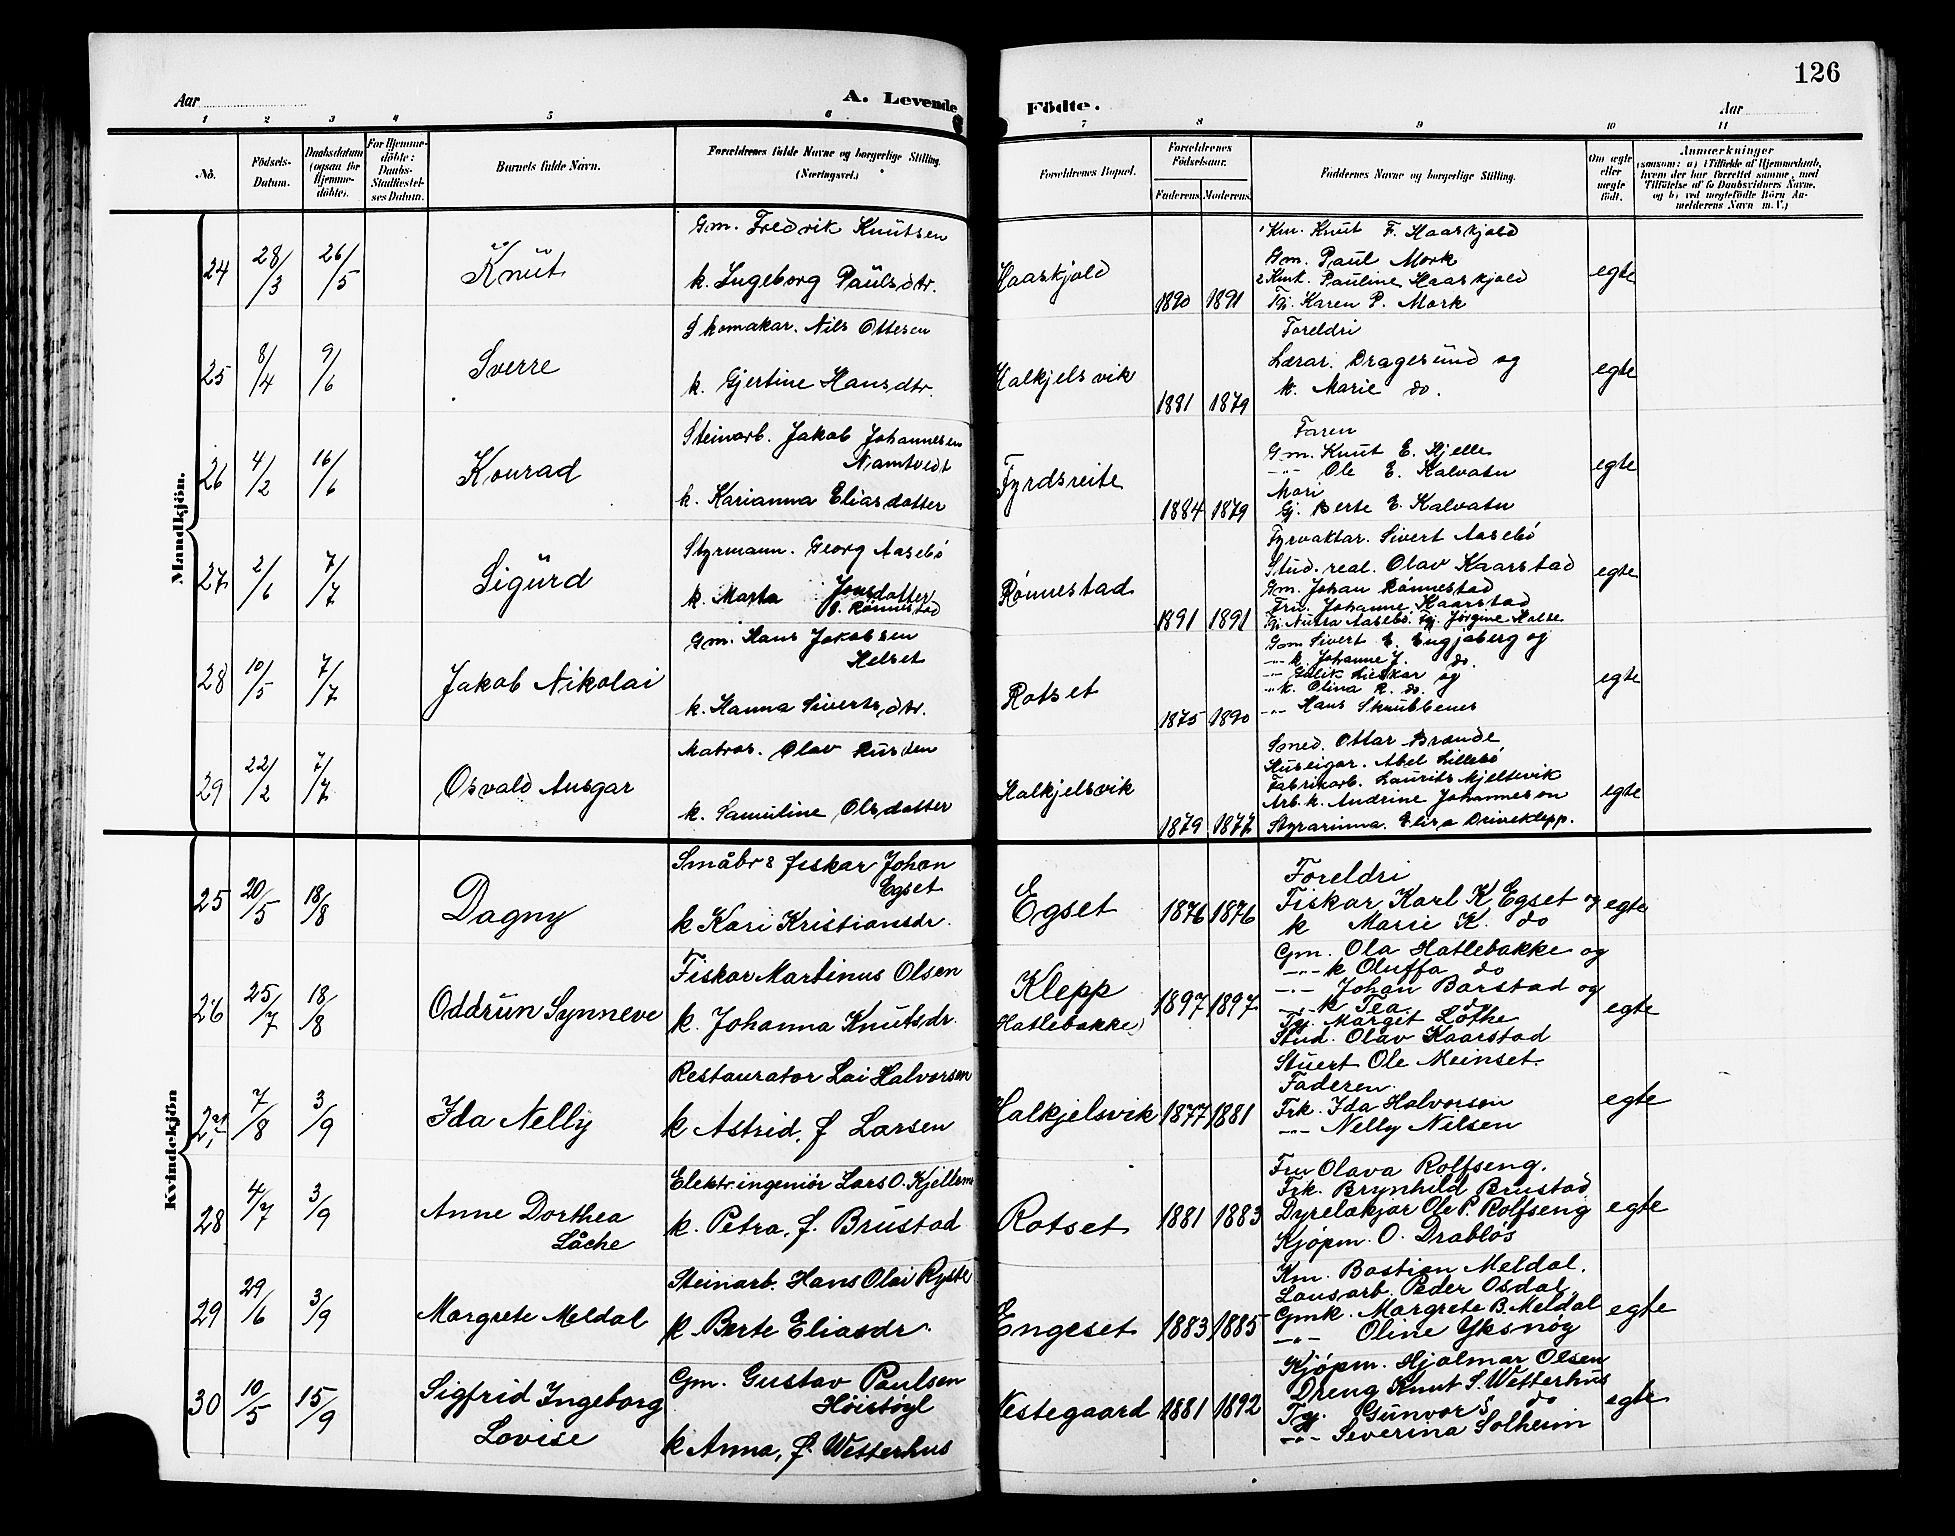 126
Aar
A. Levende Födte.
Aar
1 2 3 4 5 6 7 8 9 10 11
No.
Födsels-Datum.
Daabsdatum (ogsaa for Hjemmedöbte).
For Hjemmedöbte: Daabs-Stadfestelses Datum.
Barnets fulde Navn.
Forældrenes fulde Navne og borgerlige Stilling. (Næringsvei.)
Forældrenes Bopæl.
Forældrenes Födselsaar.
Faderens. Moderens.
Faddernes Navne og borgerlige Stilling.
Om ægte eller uægte födt.
Anmærkninger
(saasom: a) i Tilfælde af Hjemmedaab, hvem der har forrettet samme, med Tilföielse af to Daabsvidners Navne, og b) ved uægtefödte Börn Anmelderens Navn m. V.)
Mandkjön.
24 28/3 26/5 Knut
Gm. Fredrik Knutsen
k. Ingeborg Paulsdtr.
Haaskjold 1890 1891
1 Km. Knut F. Haaskjold
Gm. Paul Mork
2 Kmk. Pauline Haaskjold
Tg. Karen P. Mork
egte
25 8/4 9/6 Sverre
Skomakar. Nils Ottesen
k. Gjertine Hansdtr.
Halkjelsvik 1881 1879
Foreldri
Lærar. Dragesund og
k. Marie do.
egte
26 4/2 16/6 Konrad
Steinarb. Jakob Johannesen
Namtvedt
k. Karianna Eliasdotter
Fyrdsreite 1884 1879
Faren
Gm. Knut E. Hjelle
-"- Ole E. Kalvatn
Mori
Gj. Berte E. Kalvatn
egte
27 2/6 7/7 Sigurd
Styrmann. Georg Aasebö
k. Marta Jonsdotter
f. Rönnestad
Rönnestad 1891 1891
Fyrvaktar. Sivert Aasebö
Stud. real. Olav Kaarstad
Gm. Johan Rönnestad
Fru. Johanne Kaarstad
Tg. Nutra Aasebö. Tg. Jörgine Halse
egte
28 10/5 7/7 Jakob Nikolai
Gm. Hans Jakobsen
Helset
k. Hanna Sivertsdtr.
Rotset 1875 1890
Gm Sivert E. Engjaberg og
-"- k. Johanne J. do.
-"- Gulik Lieskar og
-"- k. Olina R. do.
-"- Hans Skubbenes
egte
29 22/2 7/7 Osvald Ansgar
Matros. Olav Rusden
k. Samuline Olsdotter
Halkjelsvik 1879 1877
Smed. Ottar Brænde
Huseigar. Abel Lillebö
Fabrikarb. Laurits Kjeltsvik
Arb. k. Andrine Johannesen
Styrarinna. Elisa Driveklepp.
egte
Kvindekjön
25 20/5 18/8 Dagny
Småbr & fiskar Johan
Egset
k Kari Kristiansdr.
Egset 1876 1876
Foreldri
Fiskar Karl K Egset og
k Marie K. do
egte
26 25/7 18/8 Oddrun Synneve
Fiskar Martinus Olsen
k. Johanna Knutsdr.
Klepp
(Hatlebakke) 1897 1897
Gm. Ola Hatlebakke og
-"- k Oluffa do
-"- Johan Barstad og
-"- k Tea. do
Tg. Marget Löthe
Stud. Olav Kaarstad
egte
27 7/8 3/9 Ida Nelly
Restaurator Lai Halvorsen
k Astrid, f Larsen
Halkjelsvik 1877 1881
Stuert Ole Meinset.
Faderen.
Frk. Ida Halvorsen
-"- Nelly Nilsen
egte
28 4/7 3/9 Anne Dorthea
Låche
Elektr. ingeniör Lars O. Kjellemo
k. Petra, f. Brustad
Rotset 1881 1883
Fru Olava Rolfseng.
Frk. Brynhild Brustad
Dyrelækjar Ole P. Rolfseng
Kjöpm. O. Drablös
egte
29 29/6 3/9 Margrete Meldal
Steinarb. Hans Olai Ryste
k Berte Eliasdr.
Engeset 1883 1885
Km. Bastian Meldal.
Lausarb. Peder Osdal.
Gmk. Margrete B. Meldal
-"- Oline Yksnöy
egte
30 10/5 15/9 Sigfrid Ingeborg
Lovise
Gm. Gustav Paulsen
Höistögl
k Anna, f. Wetterhus
Vestegaard 1881 1892
Kjöpm. Hjalmar Olsen
Dreng Knut S. Wetterhus
Tg. Gunvor S do
-"- Severina Solheim
egte